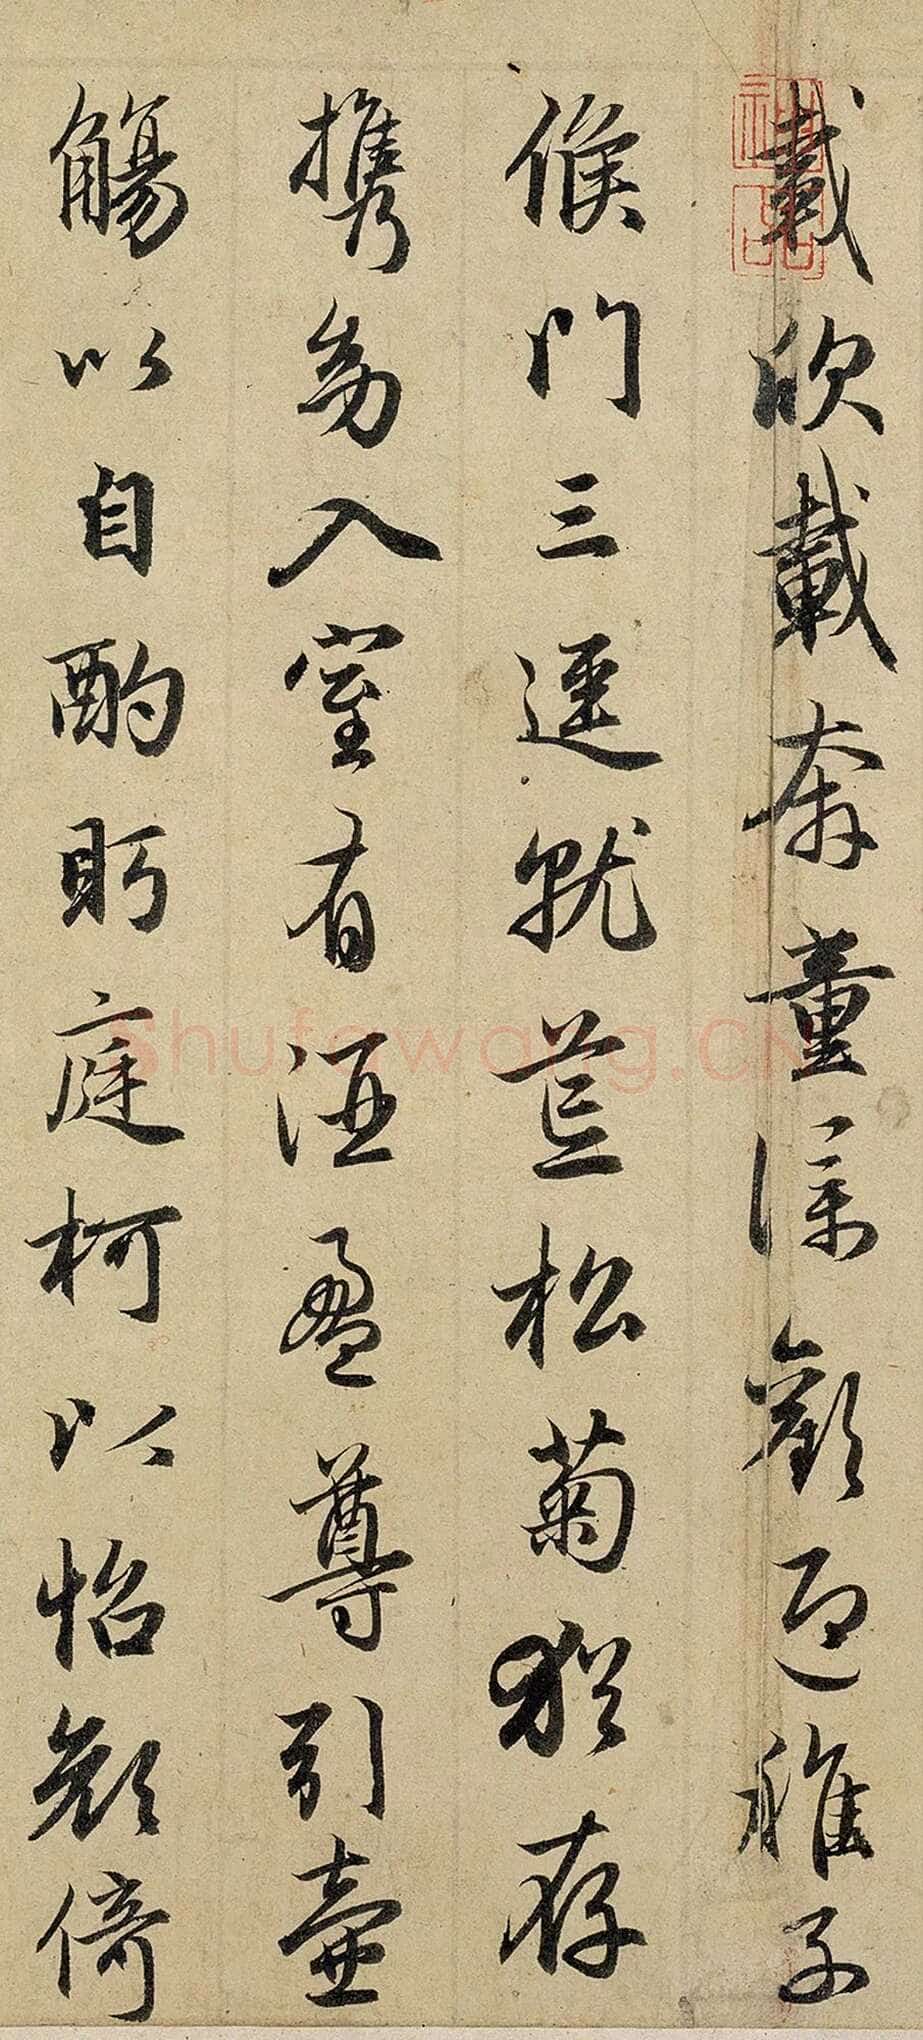 載欣載奔童僕歡迎稚子
候門三逕就荒松菊猶存
携幼入室有酒盈尊引壺
觴以自酌眄庭柯以怡顔倚
Shufawang.CN